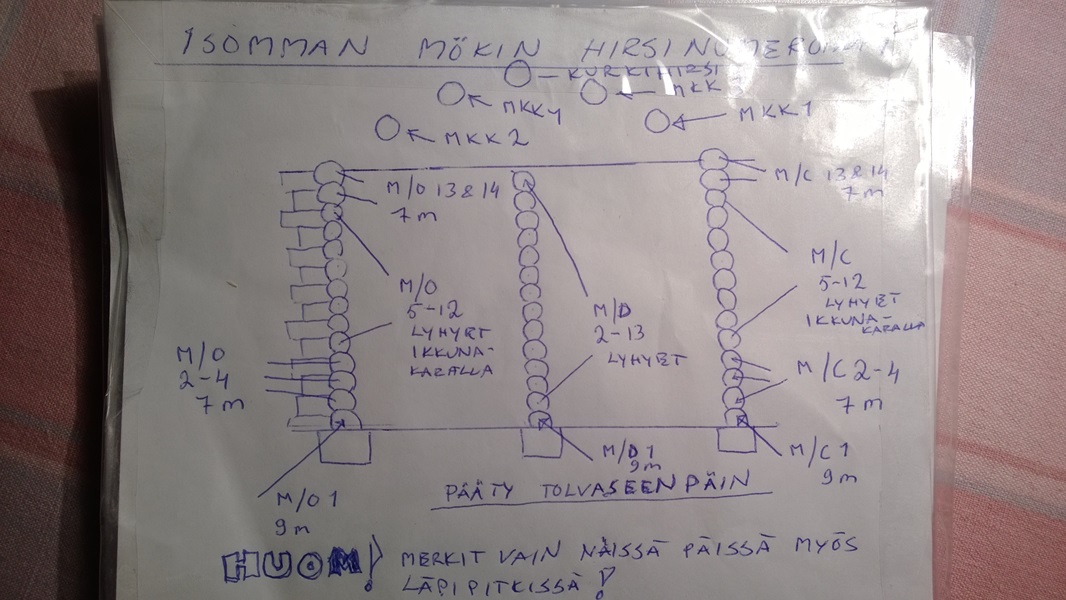 ISOMMAN MÖKIN HIRSINUMEROINTI
KURKIHIRSI
MKK
MKK1
MKK1
MKK2
M/O 13&14
7m
M/C 13&14
7m
M/O
5-12
LYHYET
IKKUNA-
KARALLA
M/D
2-13
LYHYET
M/C
5-12
LYHYET
IKKUNA-
KARALLA
M/O
2-4
7m
M/C 2-4
7m
M/D 1
9m
M/C 1
9m
M/O 1
9m
PÄÄTY TOLVASEEN PÄIN
HUOM! MERKIT VAIN NÄISSÄ PÄISSÄ MYÖS
LÄPIPITKISSÄ!